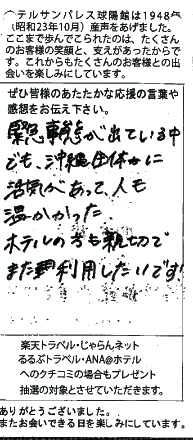 テルサンパレス球陽館は1948年
(昭和23年10月)産声をあげました。
ここまで歩んでこられたのは、たくさん
のお客様の笑顔と、支えがあったからで
す。これからもたくさんのお客様との出
会いを楽しみにしています。
ぜひ皆様のあたたかな応援の言葉や
感想をお伝え下さい。
緊急事態が出ている中
でも、沖縄自体かに
活気があって、人も
温かかった。
ホテルの方も親切で
また利用したいです!
楽天トラベル・じゃらんネット
るるぶトラベル・ANA@ホテル
へのクチコミの場合もプレゼント
抽選の対象とさせていただきます。
ありがとうございました。
またお会いできる日を楽しみにしています。